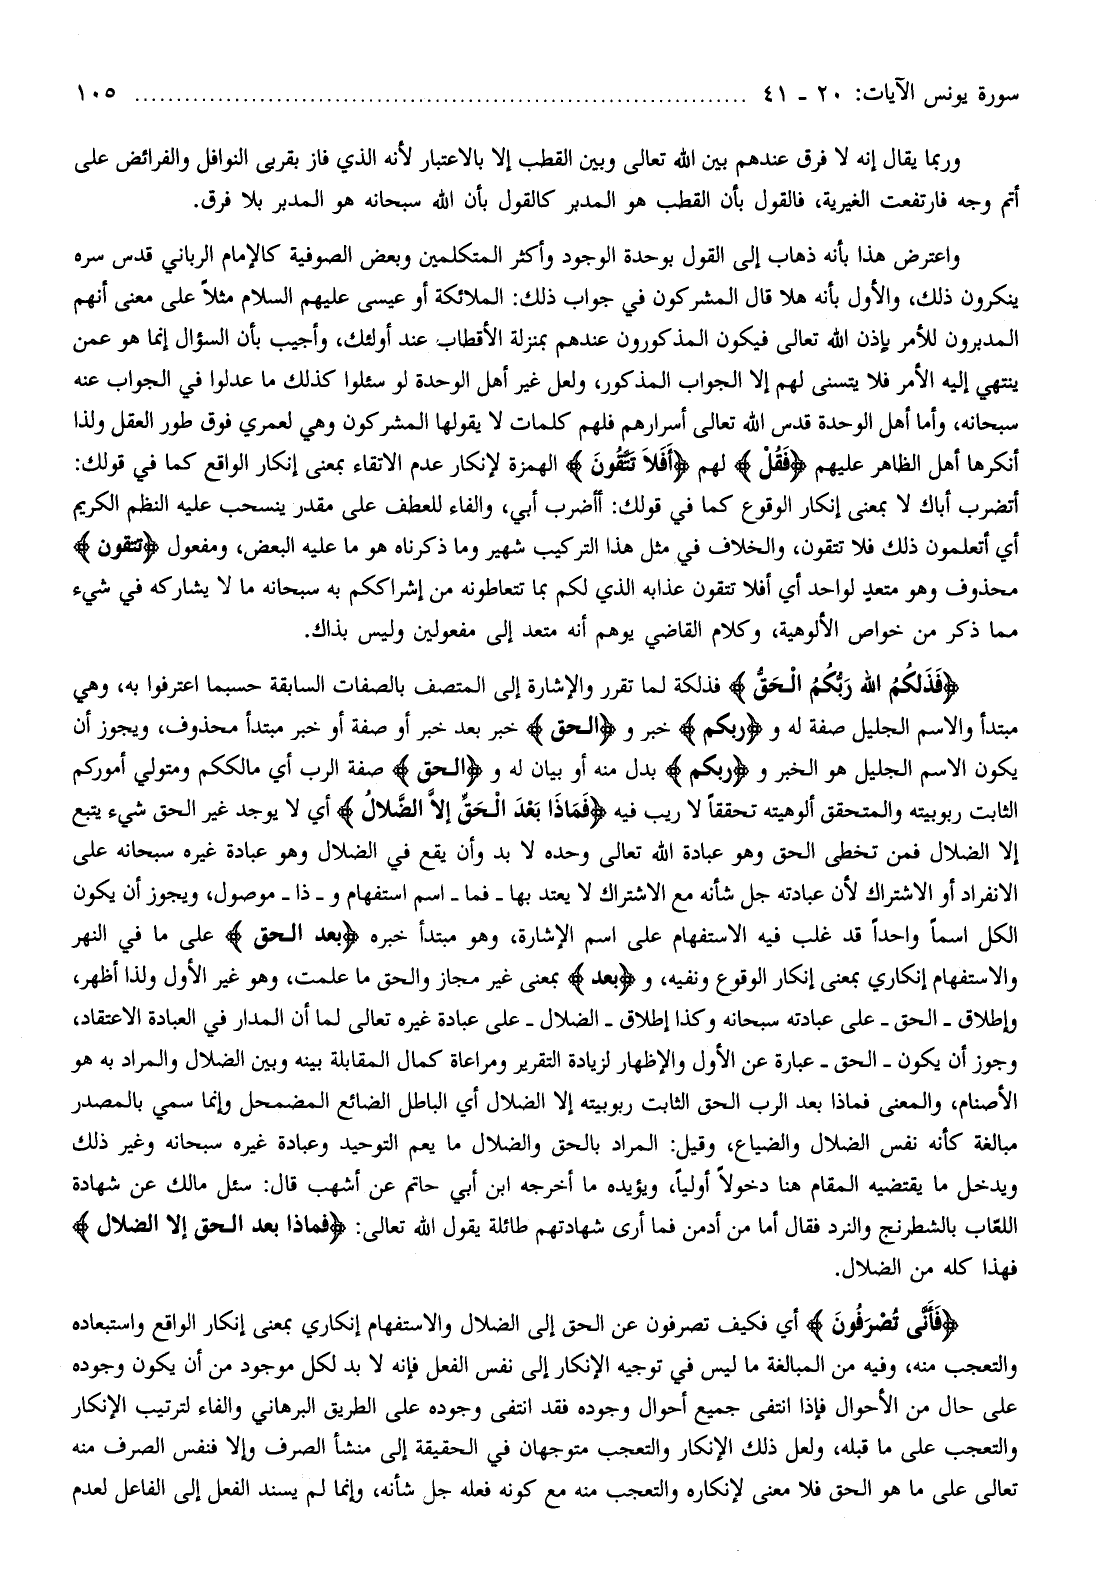 سورة يونس الآيات: ٢٠ ـ ٤١ ........................................................................... ١٠٥
وربما يقال إنه لا فرق عندهم بين الله تعالى وبين القطب إلا بالاعتبار لأنه الذي فاز بقربى النوافل والفرائض على
أتم وجه فارتفعت الغيرية، فالقول بأن القطب هو المدبر كالقول بأن الله سبحانه هو المدبر بلا فرق.
واعترض هذا بأنه ذهاب إلى القول بوحدة الوجود وأكثر المتكلمين وبعض الصوفية كالإمام الرباني قدس سره
ينكرون ذلك، والأول بأنه هلا قال المشركون في جواب ذلك: الملائكة أو عيسى عليهم السلام مثلاً على معنى أنهم
المدبرون للأمر بإذن الله تعالى فيكون المذكورون عندهم بمنزلة الأقطاب عند أولئك، وأجيب بأن السؤال إنما هو عمن
ينتهي إليه الأمر فلا يتسنى لهم إلا الجواب المذكور، ولعل غير أهل الوحدة لو سئلوا كذلك ما عدلوا في الجواب عنه
سبحانه، وأما أهل الوحدة قدس الله تعالى أسرارهم فلهم كلمات لا يقولها المشركون وهي لعمري فوق طور العقل ولذا
أنكرها أهل الظاهر عليهم ﴿فَقُلْ﴾ لهم ﴿أَفَلاَ تَتَّقُونَ﴾ الهمزة لإنكار عدم الاتقاء بمعنى إنكار الواقع كما في قولك:
أتضرب أباك لا بمعنى إنكار الوقوع كما في قولك: أأضرب أبي، والفاء للعطف على مقدر ينسحب عليه النظم الكريم
أي أتعلمون ذلك فلا تتقون، والخلاف في مثل هذا التركيب شهير وما ذكرناه هو ما عليه البعض، ومفعول ﴿تتقون﴾
محذوف وهو متعدٍ لواحد أي أفلا تتقون عذابه الذي لكم بما تتعاطونه من إشراككم به سبحانه ما لا يشاركه في شيء
مما ذكر من خواص الألوهية، وكلام القاضي يوهم أنه متعد إلى مفعولين وليس بذاك.
﴿فَذَلِكُمُ الله رَبُّكُمُ الْحَقُّ﴾ فذلكة لما تقرر والإشارة إلى المتصف بالصفات السابقة حسبما اعترفوا به، وهي
مبتدأ والاسم الجليل صفة له و ﴿ربكم﴾ خبر و ﴿الحق﴾ خبر بعد خبر أو صفة أو خبر مبتدأ محذوف، ويجوز أن
يكون الاسم الجليل هو الخبر و ﴿ربكم﴾ بدل منه أو بيان له و ﴿الحق﴾ صفة الرب أي مالككم ومتولي أموركم
الثابت ربوبيته والمتحقق ألوهيته تحققاً لا ريب فيه ﴿فَمَاذَا بَعْدَ الْحَقِّ إلاَّ الضَّلاَلُ﴾ أي لا يوجد غير الحق شيء يتبع
إلا الضلال فمن تخطى الحق وهو عبادة الله تعالى وحده لا بد وأن يقع في الضلال وهو عبادة غيره سبحانه على
الانفراد أو الاشتراك لأن عبادته جل شأنه مع الاشتراك لا يعتد بها ـ فما ـ اسم استفهام و ـ ذا ـ موصول، ويجوز أن يكون
الكل اسماً واحداً قد غلب فيه الاستفهام على اسم الإشارة، وهو مبتدأ خبره ﴿بعد الحق﴾ على ما في النهر
والاستفهام إنكاري بمعنى إنكار الوقوع ونفيه، و ﴿بعد﴾ بمعنى غير مجاز والحق ما علمت، وهو غير الأول ولذا أظهر،
وإطلاق ـ الحق ـ على عبادته سبحانه وكذا إطلاق ـ الضلال ـ على عبادة غيره تعالى لما أن المدار في العبادة الاعتقاد،
وجوز أن يكون ـ الحق ـ عبارة عن الأول والإظهار لزيادة التقرير ومراعاة كمال المقابلة بينه وبين الضلال والمراد به هو
الأصنام، والمعنى فماذا بعد الرب الحق الثابت ربوبيته إلا الضلال أي الباطل الضائع المضمحل وإنما سمي بالمصدر
مبالغة كأنه نفس الضلال والضياع، وقيل: المراد بالحق والضلال ما يعم التوحيد وعبادة غيره سبحانه وغير ذلك
ويدخل ما يقتضيه المقام هنا دخولاً أولياً، ويؤيده ما أخرجه ابن أبي حاتم عن أشهب قال: سئل مالك عن شهادة
اللعّاب بالشطرنج والنرد فقال أما من أدمن فما أرى شهادتهم طائلة يقول الله تعالى: ﴿فماذا بعد الحق إلا الضلال﴾
فهذا كله من الضلال.
﴿فَأَنَّى تُصْرَفُونَ﴾ أي فكيف تصرفون عن الحق إلى الضلال والاستفهام إنكاري بمعنى إنكار الواقع واستبعاده
والتعجب منه، وفيه من المبالغة ما ليس في توجيه الإنكار إلى نفس الفعل فإنه لا بد لكل موجود من أن يكون وجوده
على حال من الأحوال فإذا انتفى جميع أحوال وجوده فقد انتفى وجوده على الطريق البرهاني والفاء لترتيب الإنكار
والتعجب على ما قبله، ولعل ذلك الإنكار والتعجب متوجهان في الحقيقة إلى منشأ الصرف وإلا فنفس الصرف منه
تعالى على ما هو الحق فلا معنى لإنكاره والتعجب منه مع كونه فعله جل شأنه، وإنما لم يسند الفعل إلى الفاعل لعدم